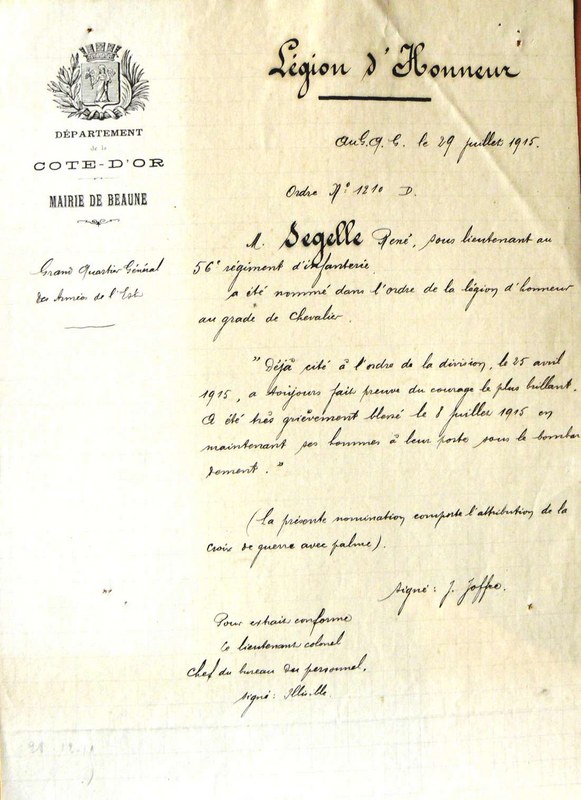 Légion d'Honneur
DÉPARTEMENT
de la
COTE-D'OR
MAIRIE DE BEAUNE
Grand Quartier Général
des Armées de l'Est
Au G.Q.G. le 29 juillet 1915.
Ordre No 1210 D.
M. Segelle René, sous lieutenant au
56e régiment d'infanterie
a été nommé dans l'ordre de la légion d'honneur
au grade de Chevalier.
"Déjà cité à l'ordre de la division, le 25 avril
1915, a toujours fait preuve du courage le plus brillant.
A été très grièvement blessé le 8 juillet 1915 en
maintenant ses hommes à leur poste sous le bombar
dement."
(La présente nomination comporte l'attribution de la
croix de guerre avec palme).
Signé: J. Joffre.
Pour extrait conforme
Le lieutenant colonel
Chef du bureau du personnel.
signé: Illisible